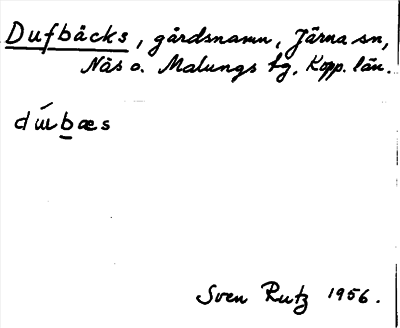 Dufbäcks, gårdsnamn, Järna sn,
Näs o. Malungs tg, Kopp. län.
dúɯbæs
Sven Rutz 1956.